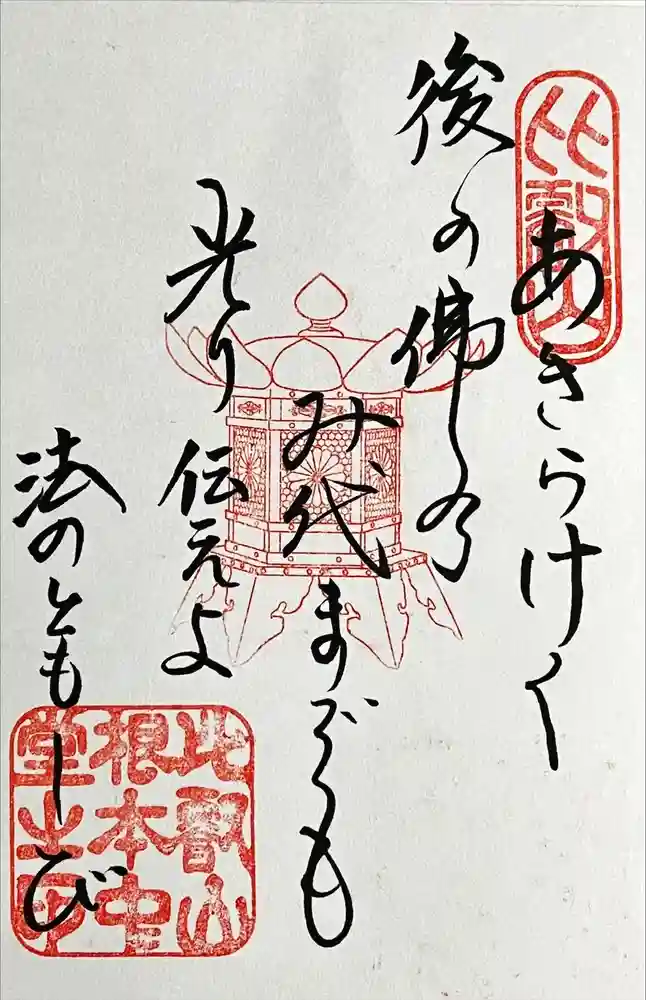 比叡山
あきらけく
後の佛の
み代までも
光り伝えよ
法のともしび
比叡山
根本中
堂之印